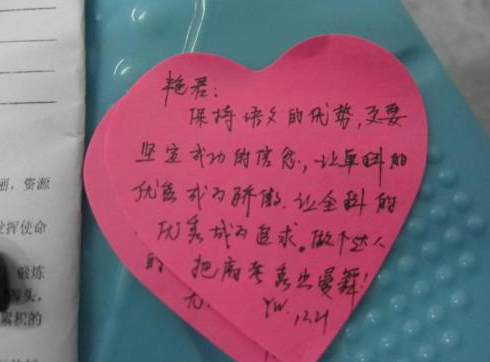 艳君:
保持语文的优势,更要
坚定成功的信念,让单科的
优秀成为骄傲,让全科的
优秀成为追求。做个达人
的 把
YW. 12.21
丽,资源
发挥使命
锻炼
源头,
累积的